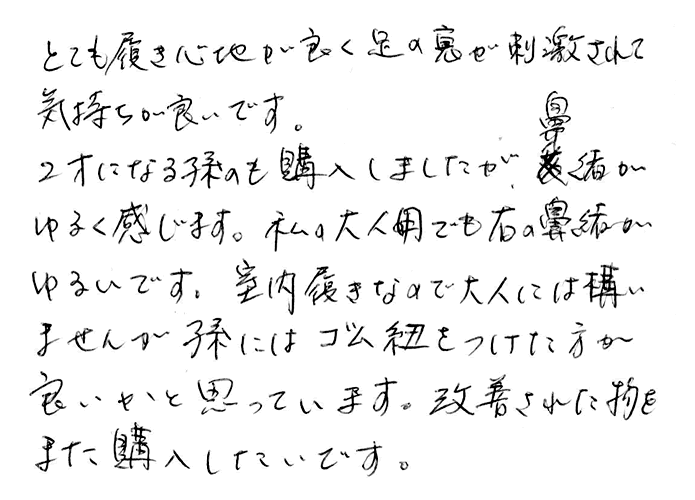 とても履き心地が良く足の裏が刺激されて
気持ちが良いです。
2才になる孫のも購入しましたが、鼻緒が
ゆるく感じます。私の大人用でも右の鼻緒が
ゆるいです。室内履きなので大人には構い
ませんが孫にはゴム紐をつけた方が
良いかと思っています。改善された物を
また購入したいです。